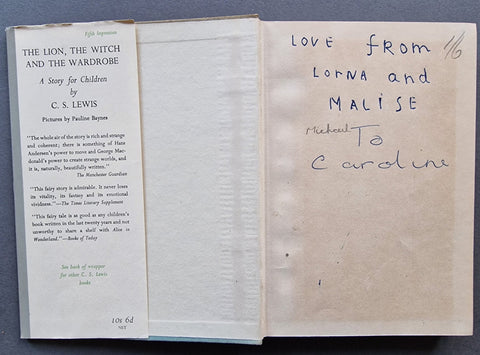 Fifth Impression
THE LION, THE WITCH
AND THE WARDROBE
A Story for Children
by
C. S. LEWIS
Pictures by Pauline Baynes
"The whole air of the story is rich and strange
and coherent; there is something of Hans
Andersen's power to move and George Mac-
donald's power to create strange worlds, and
it is, naturally, beautifully written."
The Manchester Guardian
"This fairy story is admirable. It never loses
its vitality, its fantasy and its emotional
vividness."—The Times Literary Supplement
"This fairy tale is as good as any children's
book written in the last twenty years and not
unworthy to share a shelf with Alice in
Wonderland."—Books of Today
See back of wrapper
for other C. S. Lewis
books
10s 6d
NET
LOVE from
LORNA and
MALISE
Michael To
Caroline